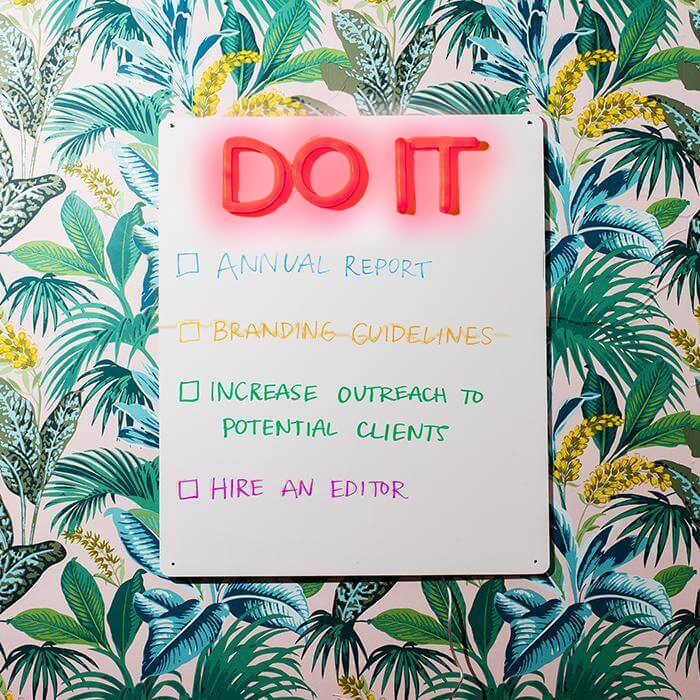 DO IT
ANNUAL REPORT
BRANDING GUIDELINES
INCREASE OUTREACH TO
POTENTIAL CLIENTS
HIRE AN EDITOR